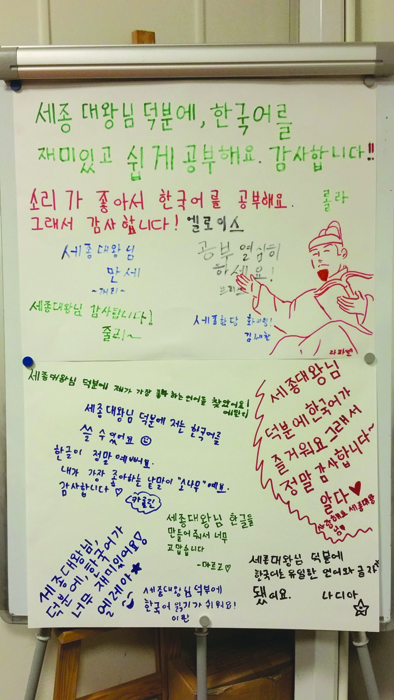 세종 대왕님 덕분에, 한국어를
재미있고 쉽게 공부해요. 감사합니다!!
롤라
소리가 좋아서 한국어를 공부해요.
그래서 감사합니다! 엘로이스
세종대왕님
만세
공부 열심히
하세요!
세종대왕님 감사합니다!
줄리~
세종대왕님 덕분에 제가 가장 하는 언어를 찾았어요!
세종대왕님 덕분에 저는 한국어를
쓸 수 있어요
한글이 정말 예뻐요.
내가 가장 좋아하는 낱말이 "소나무"예요.
감사합니다
세종대왕님
덕분에 한국어가
즐거워요 그래서
정말 감사합니다~
알다
세종대왕님 한글을
만들어 줘서 너무
고맙습니다
-마르고
세종대왕님,
덕분에, 한국어가
너무 재미있어요!
엘레아
세종대왕님 덕분에
한국어 읽기가 쉬워요!
이린
세종대왕님 덕분에
한국어도 유일한 언어와
됐어요. 나디아